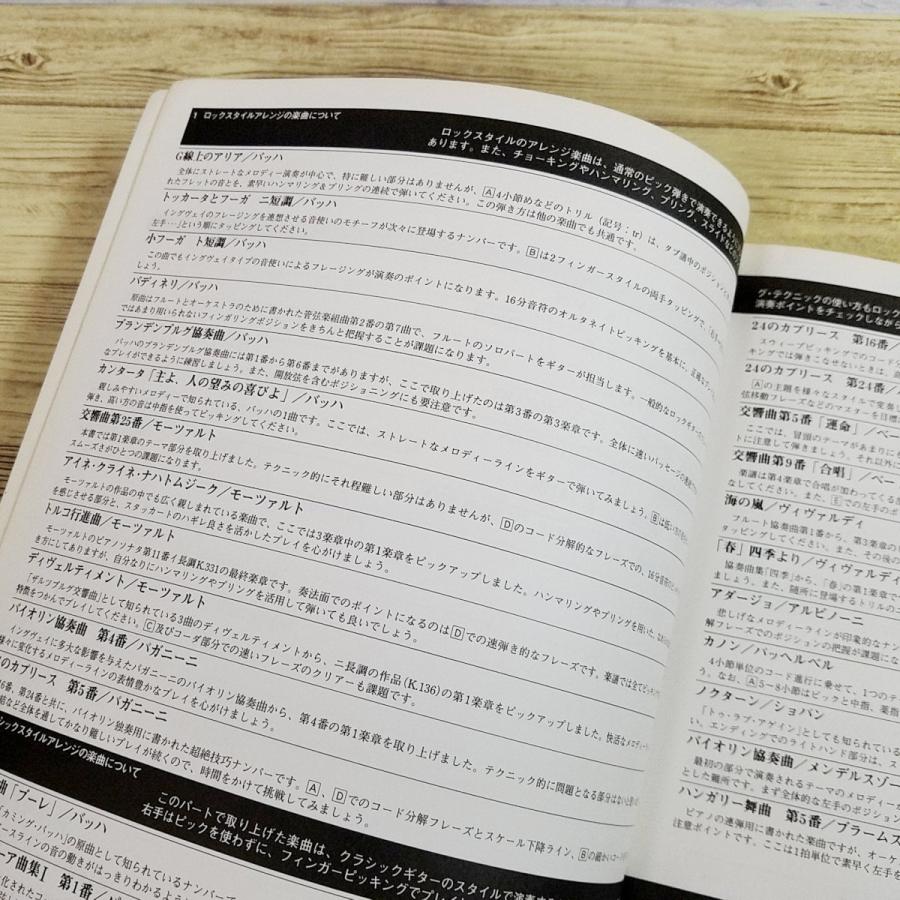 1 ロックスタイルアレンジの楽曲について
ロックスタイルのアレンジ楽曲は、通常のピック弾きで演奏できるよう
あります。また、チョーキングやハンマリング、プリング、スライドなど
G線上のアリア／バッハ
全体にストレートなメロディー演奏が中心で、特に難しい部分はありませんが、A4小節めなどのトリル（記号：tr）は、タブ譜中のポジション
れたフレットの音とを、素早いハンマリング&プリングの連続で弾いてください。この弾き方は他の楽曲でも共通です。
トッカータとフーガ ニ短調／バッハ
イングヴェイのフレージングを連想させる音使いのモチーフが次々に登場するナンバーです。Bは2フィンガースタイルの両手タッピングで、
左手…」という順にタッピングしてください。
小フーガ ト短調／バッハ
この曲でもイングヴェイタイプの音使いによるフレージングが演奏のポイントになります。16分音符のオルタネイトピッキングを基本に、正確な
しょう。
バディネリ／バッハ
原曲はフルートとオーケストラのために書かれた管弦楽組曲第2番の第7曲で、フルートのソロパートをギターが担当します。一般的なロックギター
ではあまり用いられないフィンガリングポジションをきちんと把握することが課題になります。
ブランデンブルグ協奏曲／バッハ
バッハのブランデンブルグ協奏曲には第1番から第6番までがありますが、ここで取り上げたのは第3番の第3楽章です。全体に速いパッセージの
なプレイができるように練習しましょう。また、開放弦を含むポジショニングにも要注意です。
カンタータ「主よ、人の望みの喜びよ」／バッハ
親しみやすいメロディーで知られている、バッハの1曲です。ここでは、ストレートなメロディーラインをギターで弾いてみましょう。Bは低い
弾き、高い方の音は中指を使ってピッキングしてください。
交響曲第25番／モーツァルト
本書では第1楽章のテーマ部分を取り上げました。テクニック的にそれ程難しい部分はありませんが、Dのコード分解的なフレーズでの、16分音符の
スムーズさがひとつの課題になります。
アイネ・クライネ・ナハトムジーク／モーツァルト
モーツァルトの作品の中でも広く親しまれている楽曲で、ここでは3楽章中の第1楽章をピックアップしました。ハンマリングやプリングを用いた、
を感じさせる部分と、スタッカートのハギレ良さを活かしたプレイを心がけましょう。
トルコ行進曲／モーツァルト
モーツァルトのピアノソナタ第11番イ長調K.331の最終楽章です。奏法面でのポイントになるのはDでの速弾き的なフレーズです。楽譜では全てピッキング
き方にしてありますが、自分なりにハンマリングやプリングを活用して弾いても良いでしょう。
ディヴェルティメント／モーツァルト
「ザルツブルグ交響曲」として知られている3曲のディヴェルティメントから、ニ長調の作品（K.136）の第1楽章をピックアップしました。快活なメロディー
特徴をつかんでプレイしてください。C及びコーダ部分での速いフレーズのクリアーも課題です。
バイオリン協奏曲 第4番／パガニーニ
イングヴェイに多大な影響を与えたパガニーニのバイオリン協奏曲から、第4番の第1楽章を取り上げました。テクニック的に問題となる部分はない
様々に変化するメロディーラインの表情豊かなプレイを心がけましょう。
のカプリース 第5番／パガニーニ
16番、第24番と共に、バイオリン独奏用に書かれた超絶技巧ナンバーです。A、Dでのコード分解フレーズとスケール下降ライン、Bの細かい
結など全体を通してかなり難しいプレイが続くので、時間をかけて挑戦してみましょう。
シックスタイルアレンジの楽曲について
このパートで取り上げた楽曲は、クラシックギターのスタイルで演奏す
右手はピックを使わずに、フィンガーピッキングでプレイ
曲「ブーレ」／バッハ
カミング・バッハ」の原曲として知られているナンバーで
ースラインの音の動きがはっきりわかるように
ア曲集I 第1番／バ
グ・テクニックの使い方もロック
演奏ポイントをチェックしながら
24のカプリース 第16番／
スウィープピッキングでのコード
キングでは弾きこなせないときは、
24のカプリース 第24番／
Aの主題を様々なスタイルで変奏し
弦移動フレーズなどのマスターを目標
交響曲第5番「運命」／ベー
ここでは、冒頭のテーマがあまりにも
トに注意して弾きましょう。それ以外に
交響曲第9番「合唱」／ベー
楽譜は第4楽章で合唱が加わってくる部
なしてください。また、Eでの左手のポ
海の嵐／ヴィヴァルディ
フルート協奏曲第1番から、第3楽章の
タッピングしてください。また、その後の
「春」四季より／ヴィヴァルディ
協奏曲集「四季」から、「春」の第1楽章で
ましょう。また、随所に登場するトリルのコ
アダージョ／アルビノーニ
悲しげなメロディーラインが印象的なナン
解フレーズでのポジションの把握が課題にな
カノン／パッヘルベル
4小節単位のコード進行に乗せて、1つのテ
う。なお、A5〜8小節はピックと中指、薬指
ノクターン／ショパン
「トゥ・ラブ・アゲイン」としても知られている
い、エンディングでのライトハンド部分は、ス
バイオリン協奏曲／メンデルスゾー
最初の部分で演奏されるテーマのメロディーが
とした難所です。まず全体的な左手のポジション
ハンガリー舞曲 第5番／ブラームス
ピアノの連弾用に書かれた楽曲ですが、オーケ
注意ポイントです。ここは1拍単位で素早く左手を